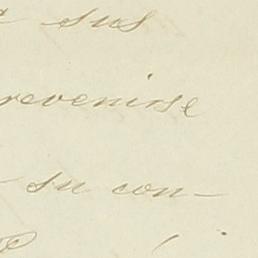 sus
revenirse
su con-